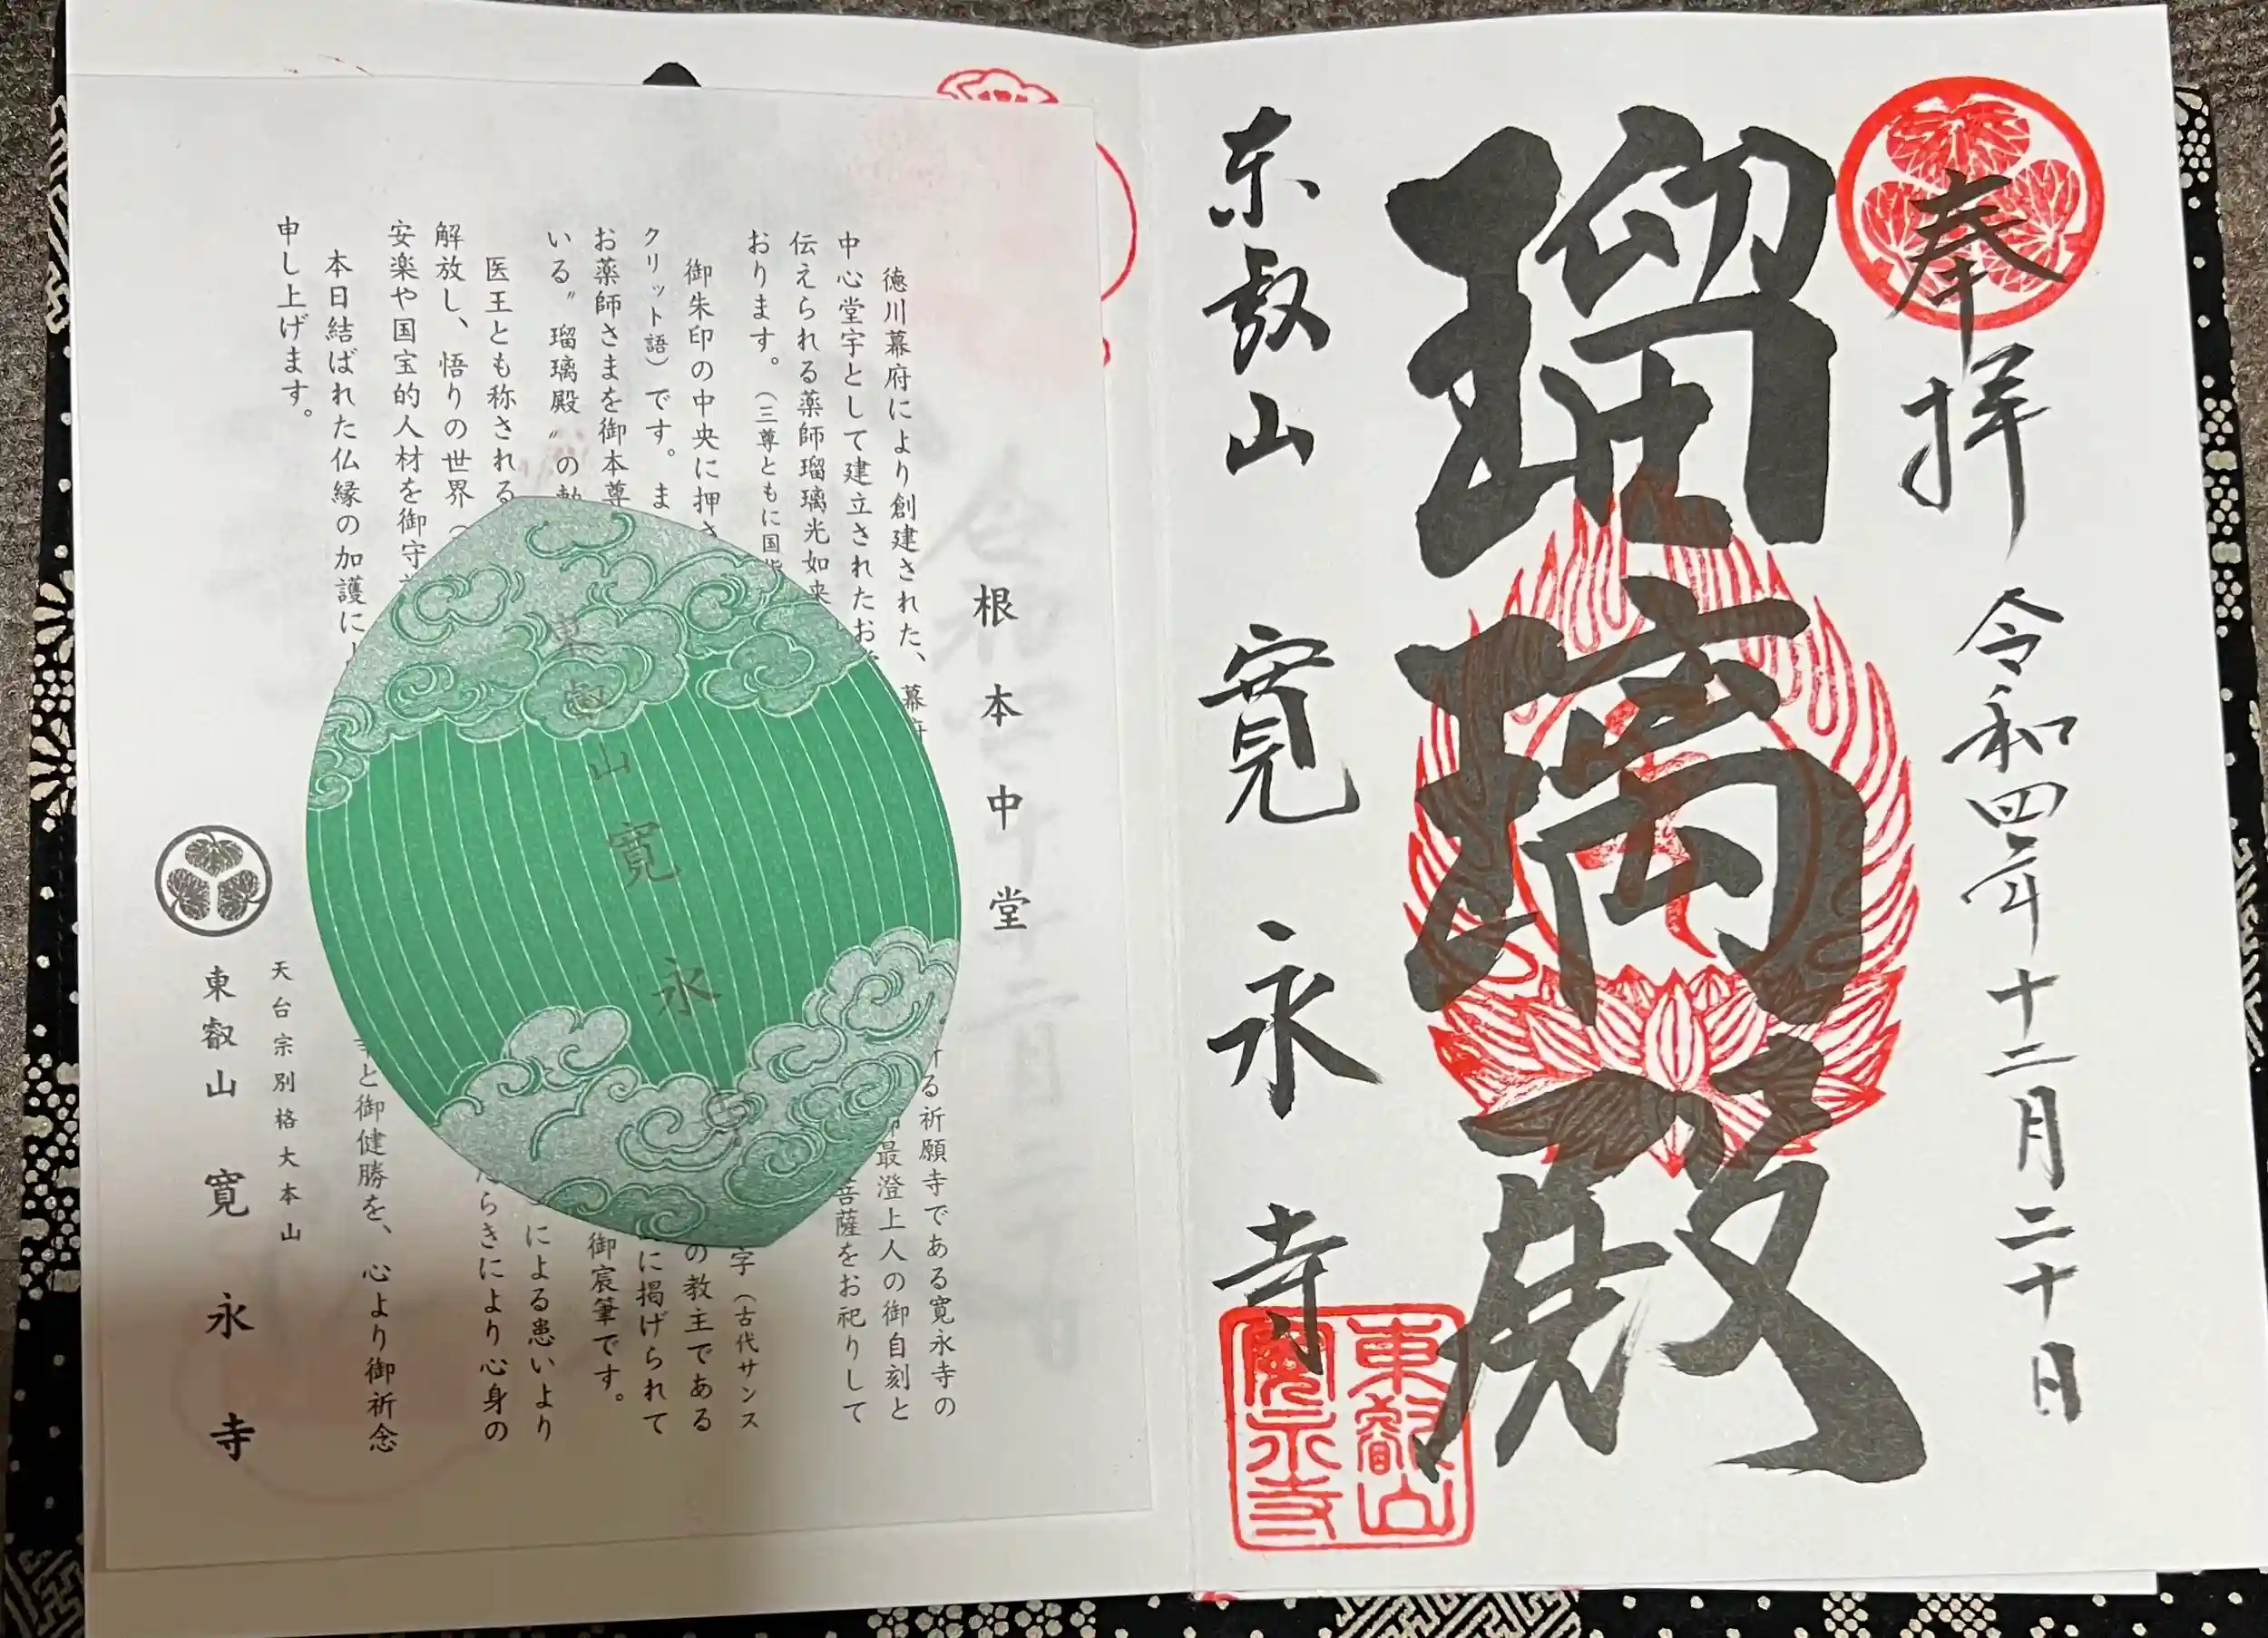 奉拝 令和四年十二月二十日
瑠璃殿
東叡山 寛永寺
東叡山
寛永寺
根本中堂
徳川幕府により創建された、幕府 る祈願寺である寛永寺の
中心堂宇として建立されたお 最澄上人の御自刻と
伝えられる薬師瑠璃光如来 菩薩をお祀りして
おります。（三尊ともに国指
御朱印の中央に押さ 字（古代サンス
クリット語）です。ま の教主である
お薬師さまを御本尊 に掲げられて
いる〝瑠璃殿〟の勅 御宸筆です。
医王とも称される による患いより
解放し、悟りの世界（ らきにより心身の
安楽や国宝的人材を御守
本日結ばれた仏縁の加護に と御健勝を、心より御祈念
申し上げます。
東叡山寛永寺
天台宗別格大本山
東叡山 寛永寺